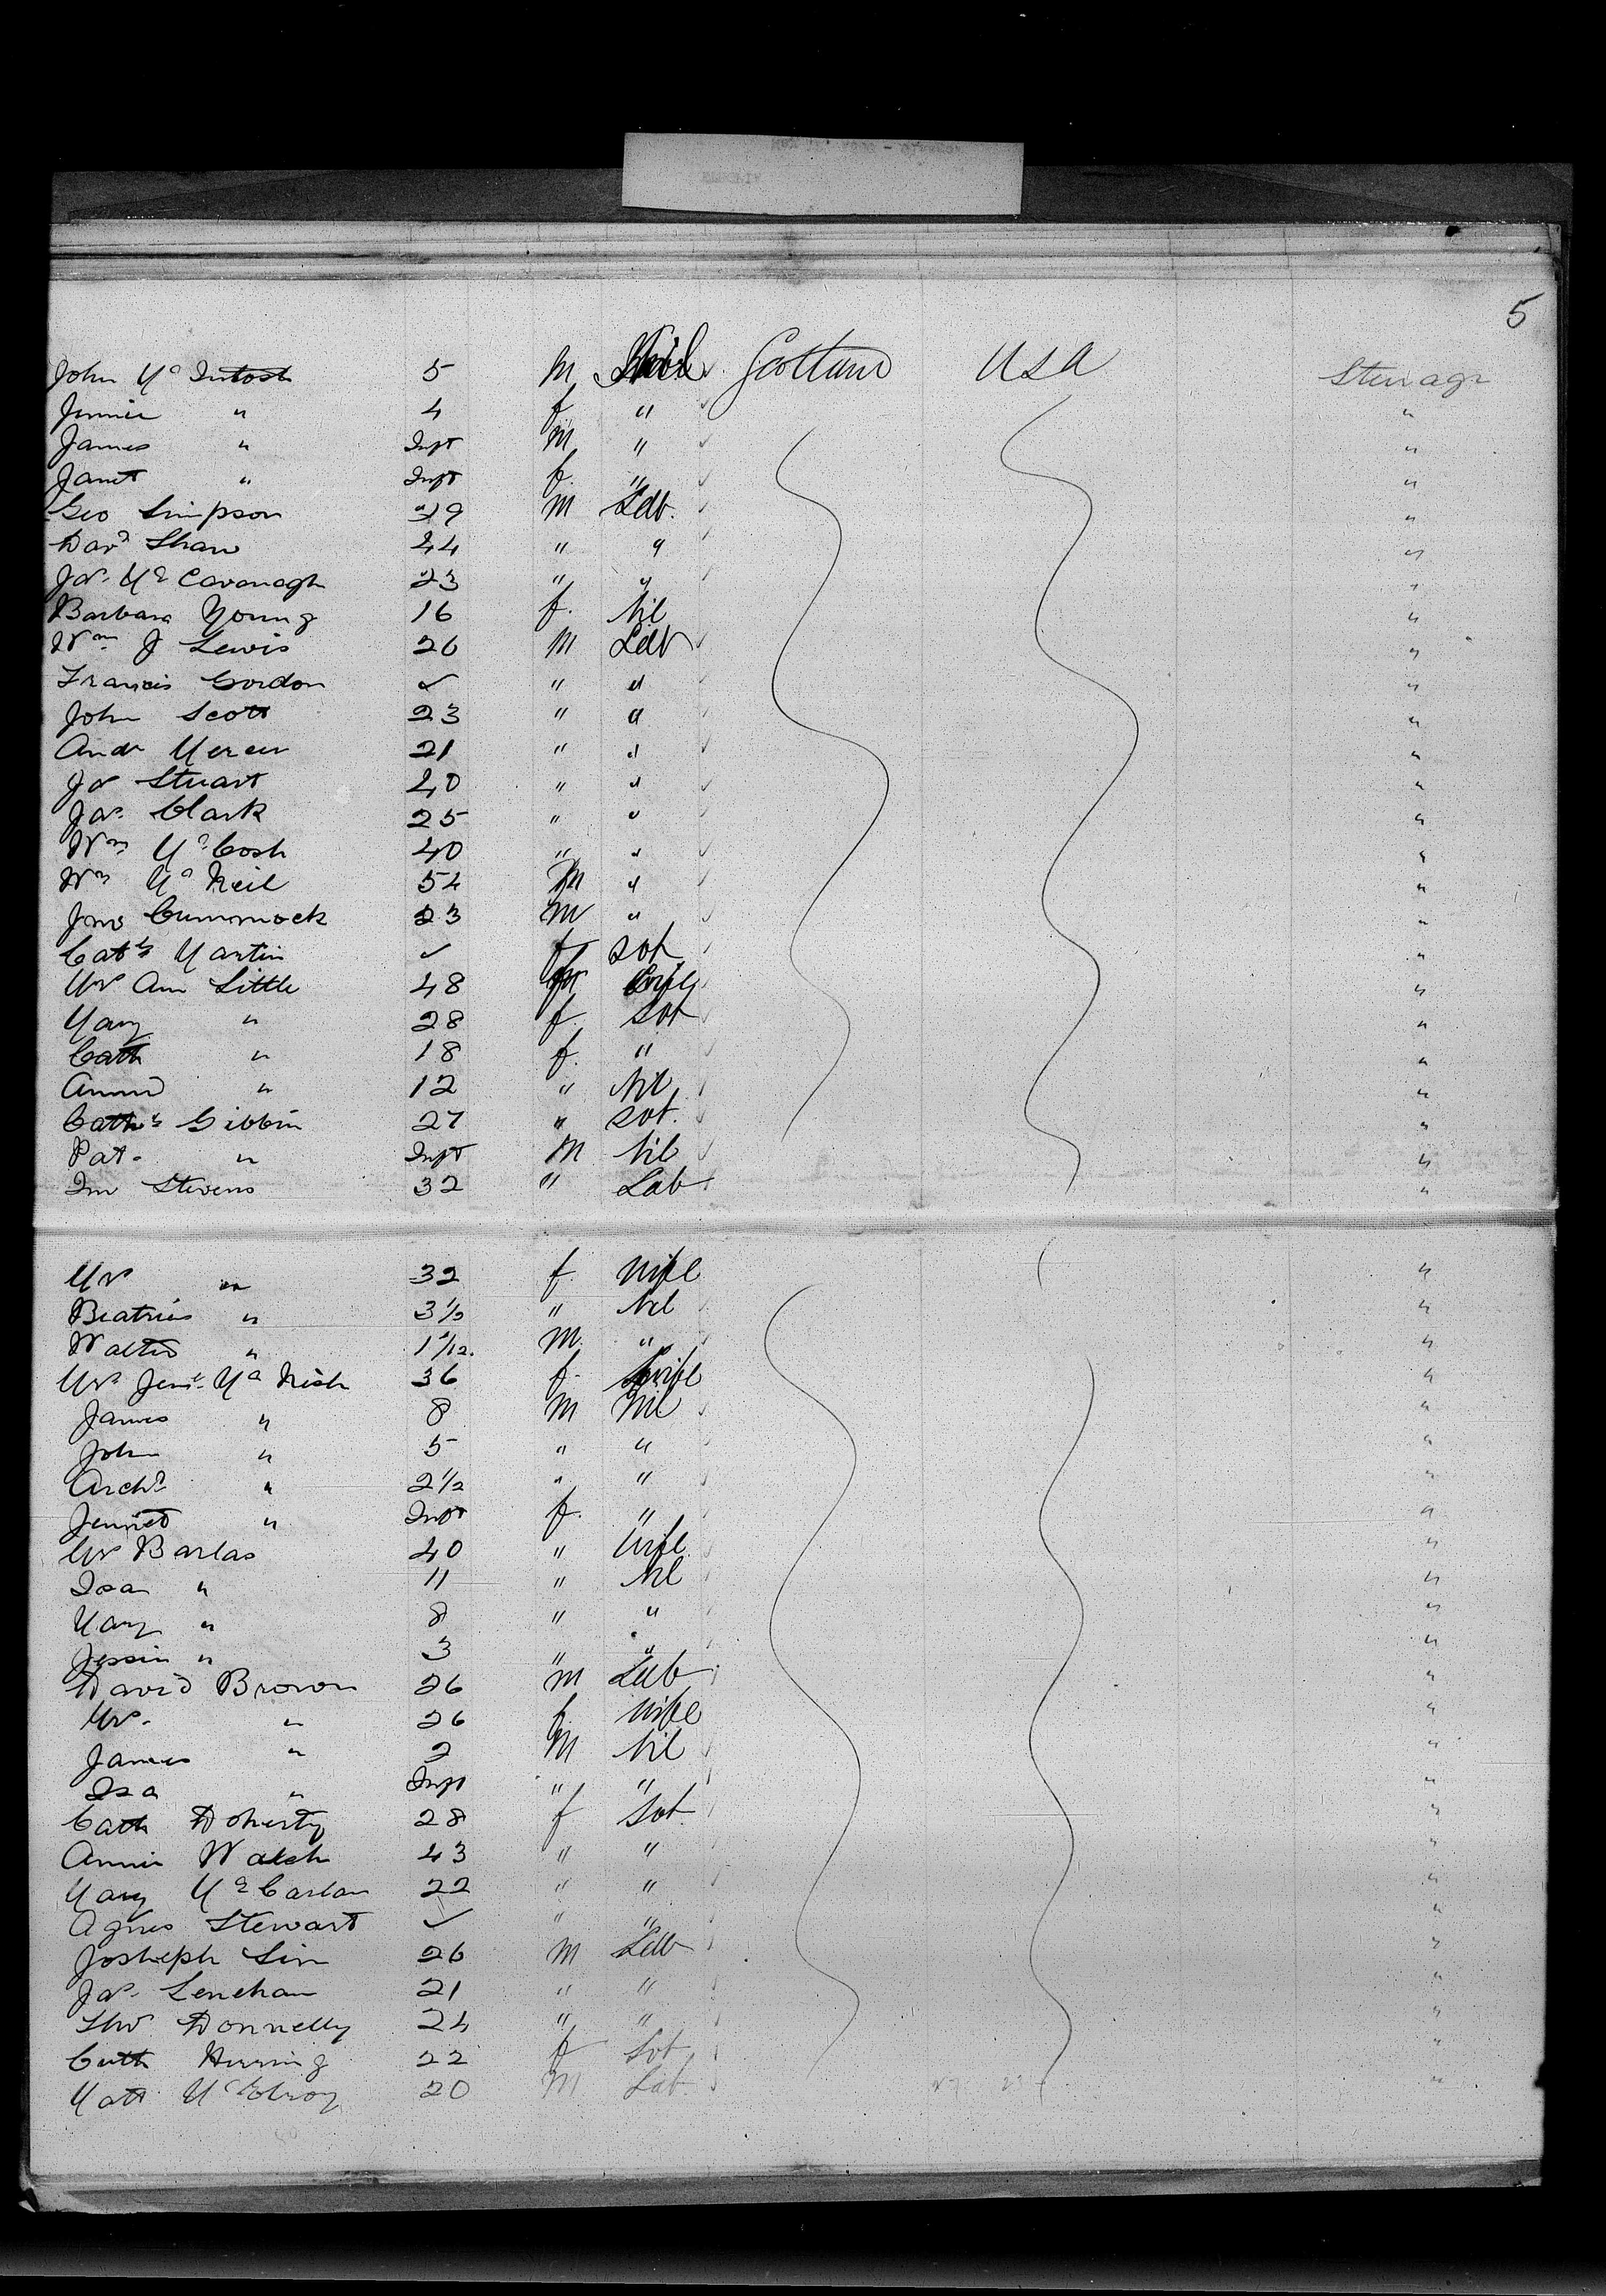 5
John Mc Intosh 5 M Nil Scotland USA Steerage
Jennie " 4 f " "
James " Inft M " "
Janet " Inft f. " "
Geo Simpson 39 M Lab. "
Davd Shaw 44 " " "
Jas. Mc Cavanagh 23 " " "
Barbara Young 16 f. Nil "
Wm J Lewis 26 M Lab "
Francis Gordon ✓ " " "
John Scott 23 " " "
Andr Mercer 21 " " "
Js Stuart 40 " " "
Jas. Clark 25 " " "
Wm Mc Cosh 40 " " "
Wm Mc Neil 54 M " "
Jno Cummock 23 M " "
Cath Martin ✓ f Svt "
Mrs Ann Little 48 Wife "
Mary " 28 f. Svt "
Cath " 18 f. " "
Annie " 12 " Nil "
Cathe Gibbin 27 " Svt. "
Pat. " Inft M Nil "
Jno Stevens 32 " Lab "
Mrs " 32 f. Wife "
Beatrice " 3 1/2 " Nil "
Walter " 1 1/12. M. " "
Mrs Jene Mc Nish 36 f. Wife "
James " 8 M Nil "
John " 5 " " "
Archd " 2 1/2 " " "
Jennet " Inft f. " "
Mrs Barlas 40 " Wife "
Isa " 11 " Nil "
Mary " 8 " " "
Jessie " 3 " " "
David Brown 26 M Lab "
Mrs. " 26 f. Wife "
James " 2 M Nil "
Isa " Inft " " "
Cath Doherty 28 f Svt. "
Annie Walsh 43 " " "
Mary Mc Carlan 22 " " "
Agnes Stewart ✓ " " "
Josheph Sim 26 M Lab "
Jas. Lenehan 21 " " "
Thos Donnelly 24 " " "
Cath Herring 22 f Svt "
Matt McElroy 20 M Lab "